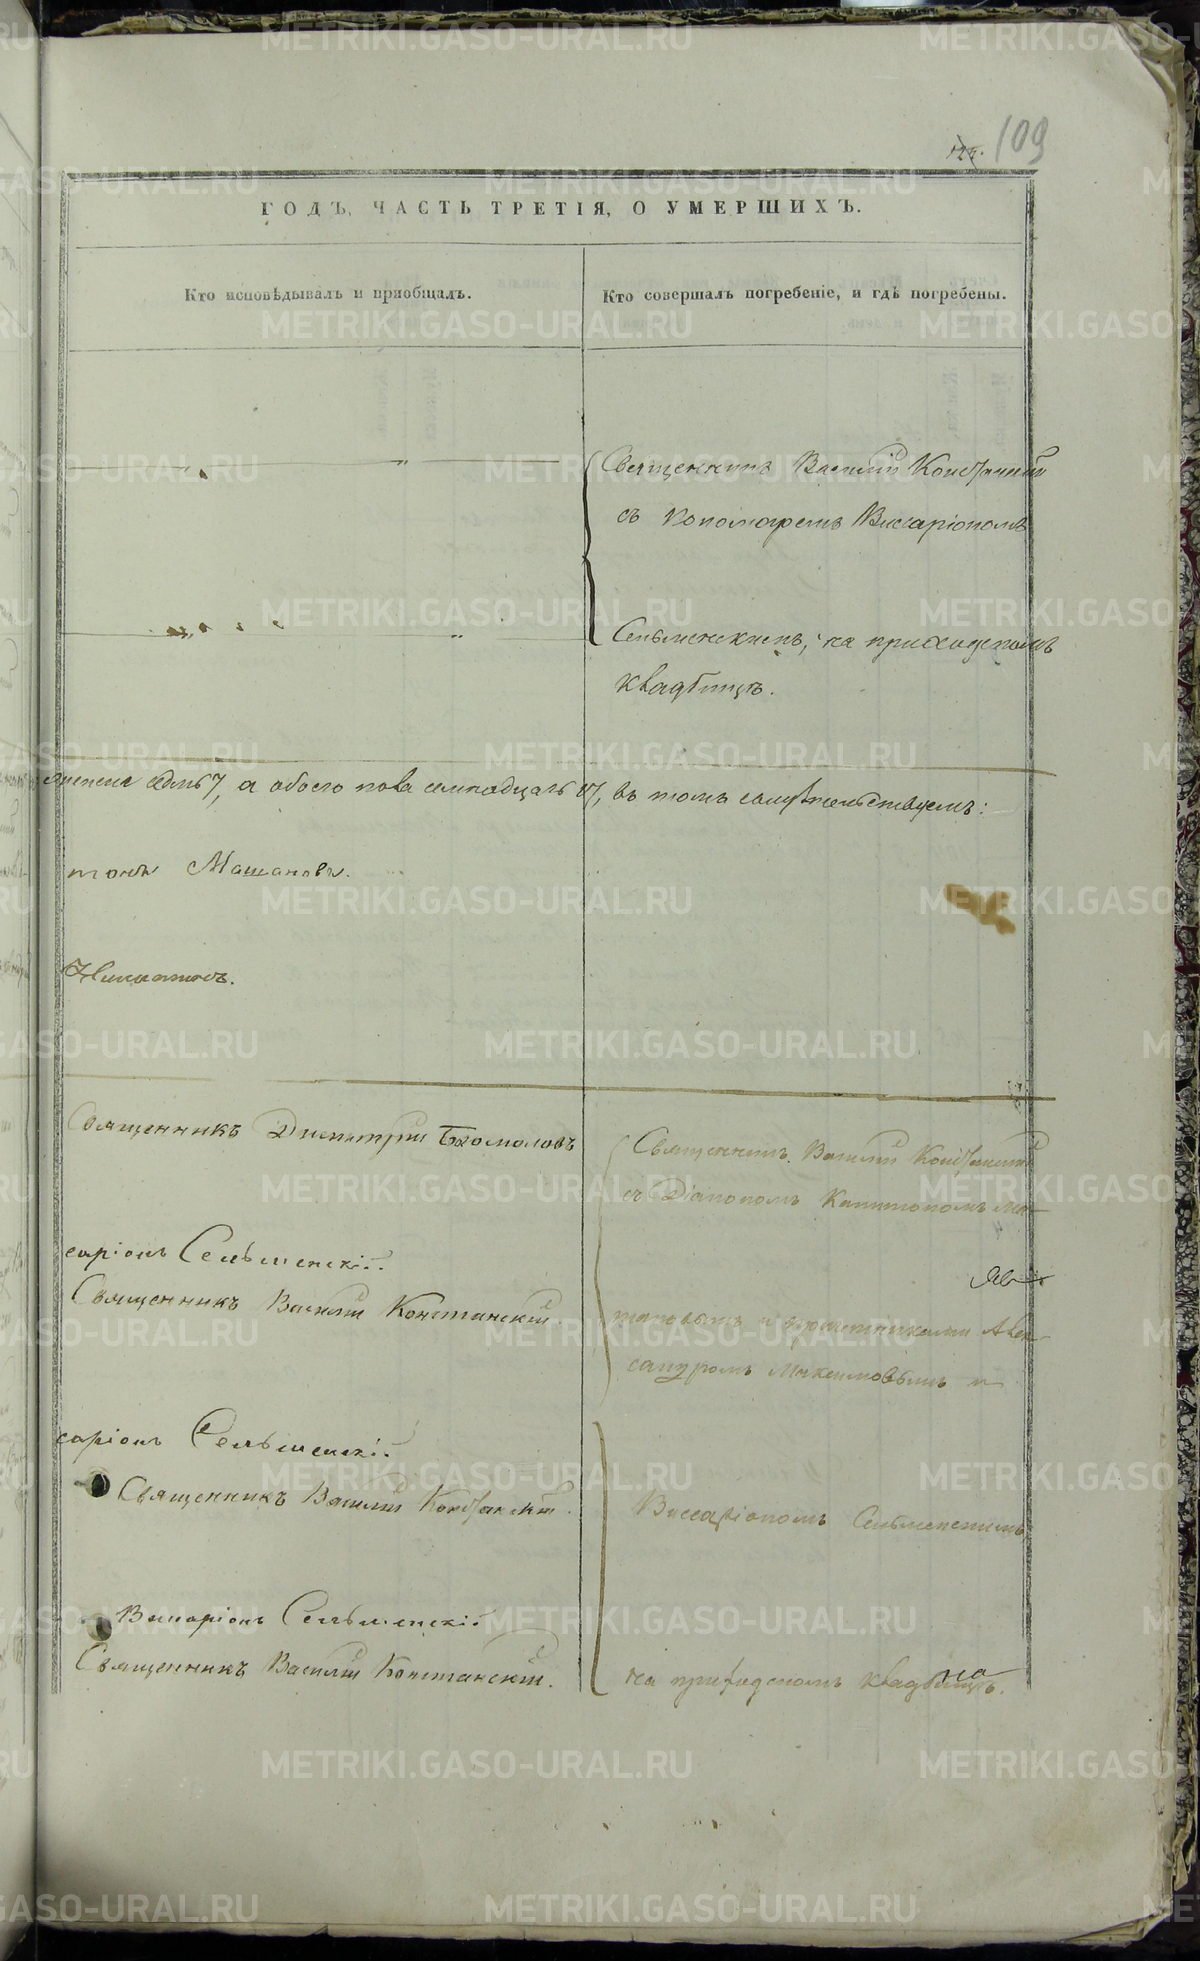 109
ГОДЪ, ЧАСТЬ ТРЕТІЯ, О УМЕРШИХЪ.
Кто исповѣдывалъ и пріобщалъ.
Кто совершалъ погребеніе, и гдѣ погребены.
Священникъ Василій Констанскій
съ пономаремъ Виссаріономъ
Сельменскимъ, на приходскомъ
кладбищѣ.
женска седмь 7, а обоего пола семнадцать 17, въ томъ свидѣтельствуемъ:
тонъ Машановъ.
Священникъ Димитрій Богомоловъ
Священникъ Василій Констанскій
съ Діакономъ Капитономъ Ма-
саріонъ Сельменскій.
Священникъ Василій Констанскій.
шановымъ и причетниками Алек-
сандромъ Максимовымъ и
саріонъ Сельменскій.
Священникъ Василій Констанскій.
Виссаріономъ Сельменскимъ
Виссаріонъ Сельменскій.
Священникъ Василій Констанскій.
на приходскомъ кладбищѣ.
METRIKI.GASO-URAL.RU